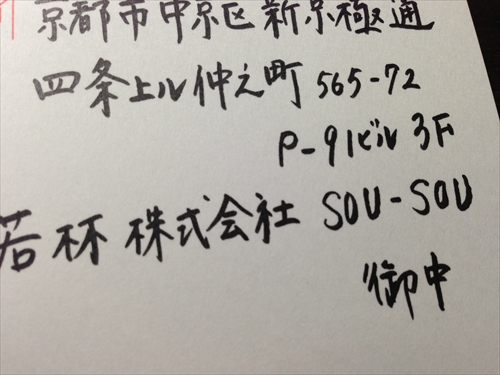 京都市中京区新京極通
四条上ル仲之町 565-72
P-91ビル 3F
若林 株式会社 SOU-SOU
御中